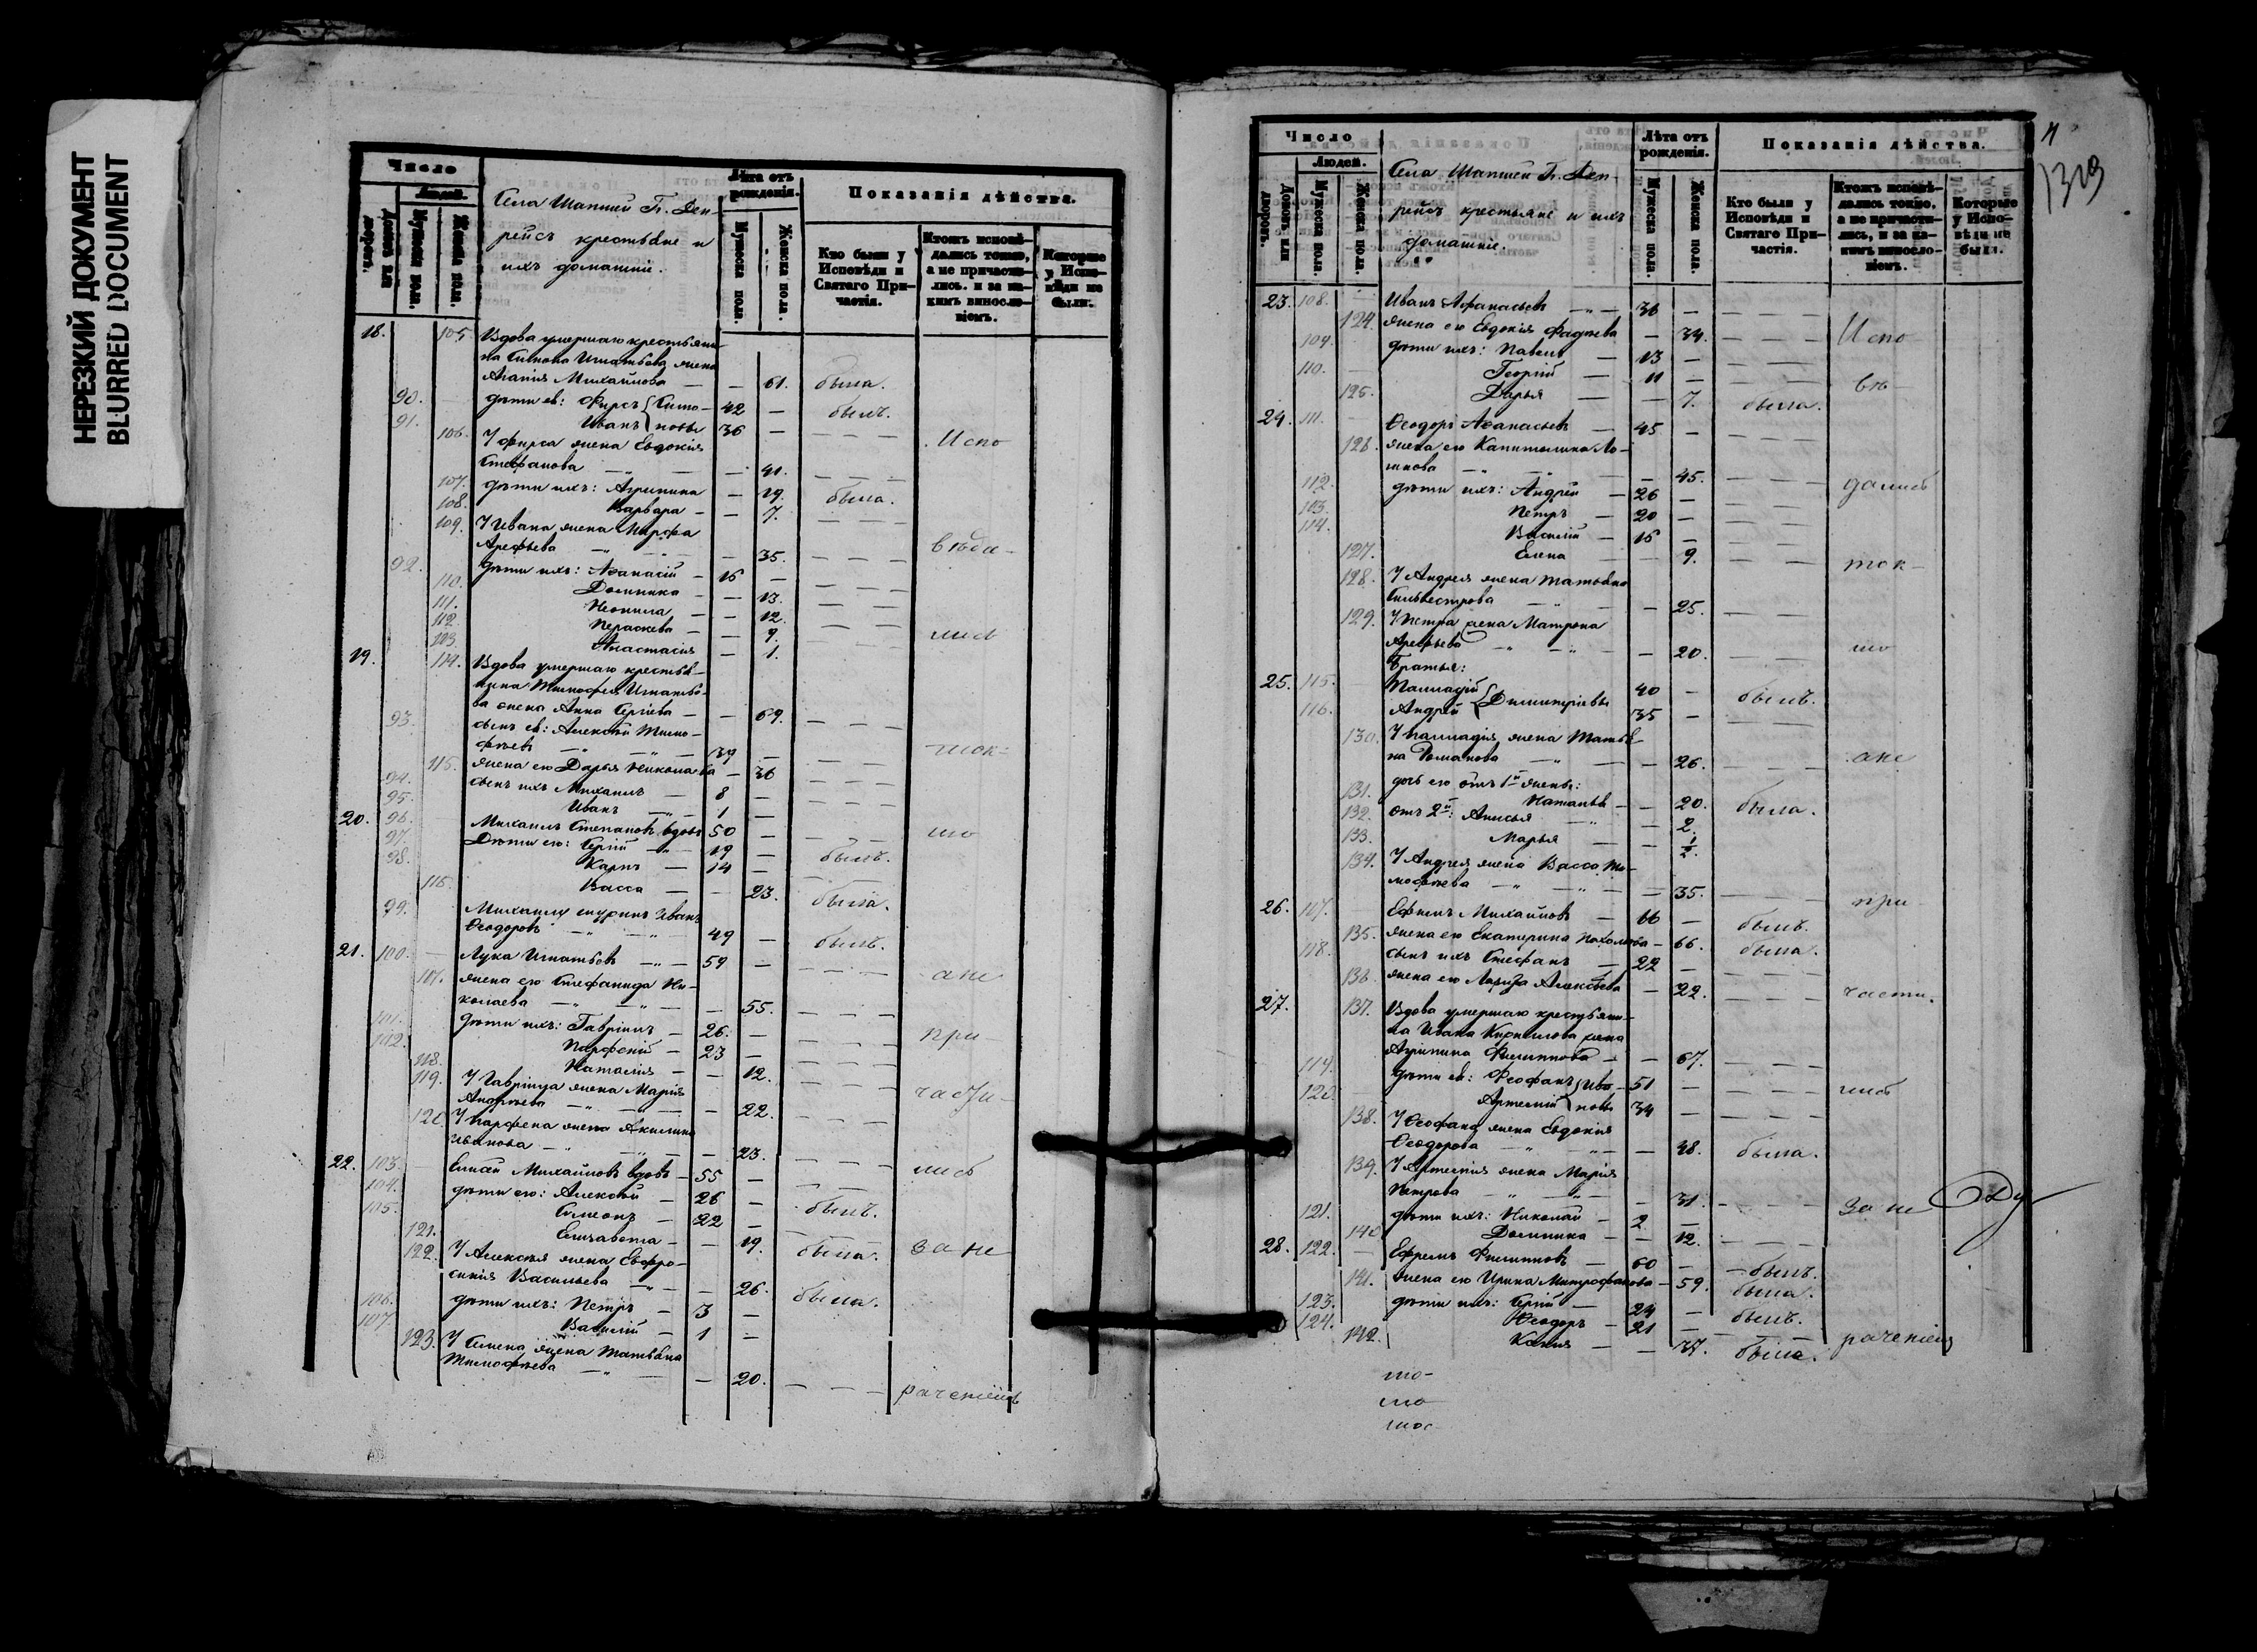 НЕРЕЗКИЙ ДОКУМЕНТ
BLURRED DOCUMENT
Число
Людей.
Домовъ или дворовъ.
Мужеска пола.
Женска пола.
Села Шапшей Г. Деп-
рейсъ крестьяне и
ихъ домашніе.
Лѣта отъ рожденія.
Мужеска пола.
Женска пола.
Показанія дѣйства.
Кто были у Исповѣди и Святаго Причастія.
Ктожъ исповѣдались токмо, а не причастились, и за какимъ винословіемъ.
Которые у Исповѣди не были.
18. 105 Вдова умершаго крестьяни-
на Симона Игнатьева жена
Агапія Михайлова — — 61. была.
90. дѣти ея: Фирсъ { Симо- 42 — былъ.
91. Иванъ { новы 36 — — — —
106. У Фирса жена Евдокія Испо
Стефанова — — 41. — — —
107. дѣти ихъ: Агрипина — 19. была.
108. Варвара — — 7. — — —
109. У Ивана жена Марфа
Арефьева — — 35. — — — вѣда-
92. дѣти ихъ: Аѳанасій — 16 — — — —
110. Домника — — 13. — — —
111. Неонила — — 12. — — —
112. Пераскева — — 9. — — — лись
113. Анастасія — 1.
19. 114. Вдова умершаго крестья-
нина Тимофея Игнатье-
ва жена Анна Сергіева — — 69. — — —
93. сынъ ея: Алексѣй Тимо-
фѣевъ — 39 — — — — ток-
115. жена его Дарья Николаева — 36 — — —
94. сынъ ихъ Михаилъ — 8 — — — —
95. Иванъ 1 —
20. 96. Михаилъ Степановъ вдовъ 50 — — — — мо
97. Дѣти его: Сергій — 19 — былъ.
98. Карпъ — 14 — — — —
116. Васса — — 23. была.
99. Михаилу шуринъ Иванъ
Ѳеодоровъ — 49 — былъ.
21. 100. Лука Игнатьевъ — 59 — — — —
117. жена его Стефанида Ни- ане
колаева — — 55. — — —
101. дѣти ихъ: Гавріилъ — 26. — — — —
102. Парфеній — 23 — — — — при-
118. Наталія — — 12. — — —
119. У Гавріила жена Марія
Андрѣева — — 22. — — — части-
120. У Парфена жена Акилина
Иванова — — 23. — — —
22. 103. Елисей Михайловъ вдовъ — 55 — — — — лись
104. дѣти его: Алексѣй — 26 — былъ.
105. Симеонъ — 22 — — — —
121. Елизавета — — 19. была. за не
122. У Алексѣя жена Евфро-
синія Васильева — 26. была.
106. дѣти ихъ: Петръ — 3 —
107. Василій — 1 —
123. У Симена жена Татьяна
Тимофѣева — — 20. — — — раченіемъ
1309
Число
Людей.
Домовъ или дворовъ.
Мужеска пола.
Женска пола.
Села Шапшей Г. Деп-
рейсъ крестьяне и ихъ
домашніе.
Лѣта отъ рожденія.
Мужеска пола.
Женска пола.
Показанія дѣйства.
Кто были у Исповѣди и Святаго Причастія.
Ктожъ исповѣдались токмо, а не причастились, и за какимъ винословіемъ.
Которые у Исповѣди не были.
23. 108. Иванъ Афанасьевъ — 36 — — — —
124. жена его Евдокія Фадѣева — 34. — — — Испо
109. дѣти ихъ: Павелъ — 13 — — — —
110. Георгій — 11 — — — — вѣ-
125. Дарья — — 7. была.
24. 111. Ѳеодоръ Аѳанасьевъ — 45 — — — —
126. жена его Капитолина Ло-
гинова — — 45. — — — дались
112. дѣти ихъ: Андрей — 26 — — — —
113. Петръ — 20 — — — —
114. Василій — 16 — — — —
127. Елена — 9. — — — ток-
128. У Андрея жена Татьяна
Сильвестрова — — 25. — — —
129. У Петра жена Матрона
Арефьева — — 20. — — — мо
Братья:
25. 115. Палладій { Димитріевы 40 — былъ.
116. Андрей { 35 — — — —
130. У Палладія жена Татья-
на Романова — — 26. — — — ане
дочь его отъ 1й жены:
131. Наталья — — 20. была.
132. отъ 2й: Анисья — — 2.
133. Марья — — ½.
134. У Андрея жена Васса Ти-
мофѣева — — 35. — — — при
26. 117. Ефимъ Михайловъ — 66 — былъ.
135. жена его Екатерина — 66. была.
118. сынъ ихъ Стефанъ — 22 — — — —
136. жена его Алексѣева — 22. — — — части-
27. 137. Вдова умершаго крестьяни-
на Ивана Кирилова жена
Агрипина Филиппова — — 67. — — —
119. дѣти ея: Ѳеофанъ { Ива- 51 — — — — лись
120. Артемій { новы 34 — — — —
138. У Ѳеофана жена Евдокія
Ѳеодорова — — 48. была.
139. У Артемія жена Марія
Петрова — — 31. — — — за не
121. дѣти ихъ: Николай — 2 —
140. Домника — — 12. — — —
28. 122. Ефремъ Филипповъ — 60 — былъ.
141. жена его Ирина Митрофанова — 59. была.
123. дѣти ихъ: Сергій — 24 — былъ.
124. Ѳеодоръ — 21 — — — —
142. Ксенія — — 37. была. раченіемъ